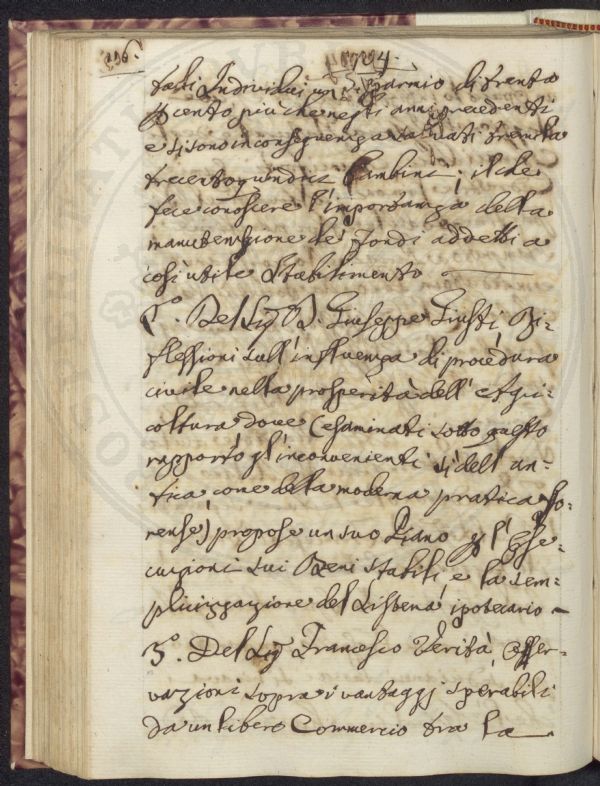 196.
tanti Individui un risparmio di trenta
p cento più che negli anni precedenti
e si sono in conseguenza salvati tremila
trecentoquindici bambini; il che
fece conoscere l'importanza della
manutenzione de' fondi addetti a
così utile stabilimento
2º. Del Sig D. Giuseppe Giusti, Ri=
flessioni sull'influenza di procedura
civile nella prosperità dell'Agri=
coltura dove (esaminati sotto questo
rapporto gl'inconvenienti sì dell'an=
tica, come della moderna pratica fo=
rense) propose un suo Piano p l'Ese=
cuzioni sui Beni stabili, e la sem=
plicizzazione del Sistema ipotecario
3º. Del Sig Francesco Verità, Osser=
vazioni sopra i vantaggj sperabili
da un libero Commercio tra la